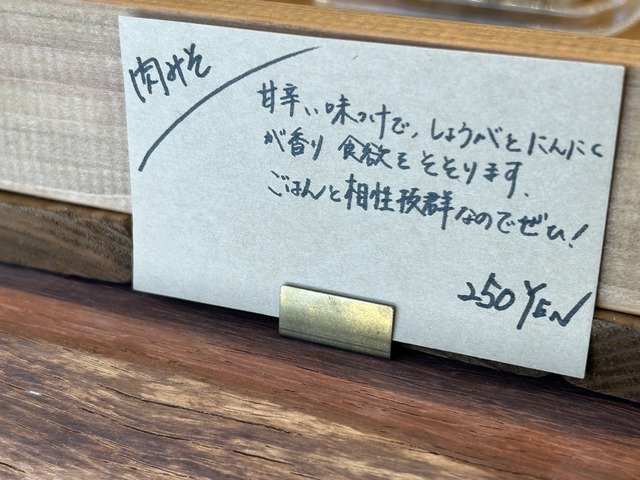 肉みそ
甘辛い味つけで、しょうがとにんにく
が香り食欲をそそります。
ごはんと相性抜群なのでぜひ!
250 YEN